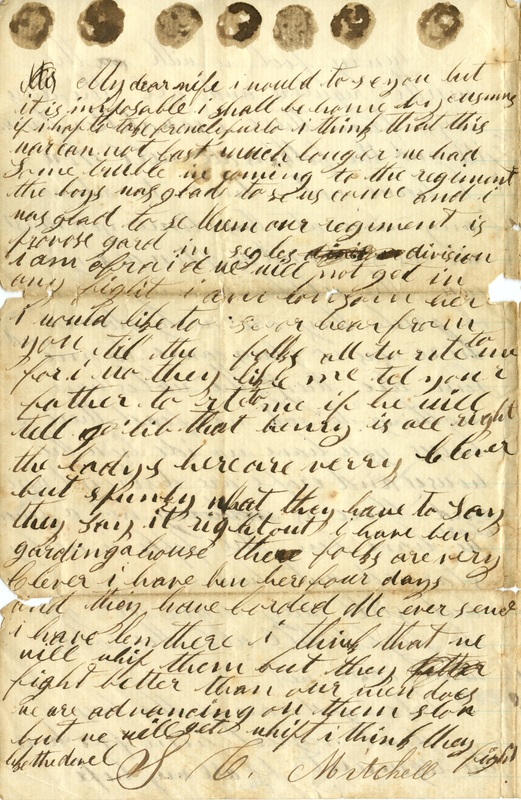 My dear wife i would to se you but
it is imposable i shall be home by
if i hap to take french furlo i think that this
war can not last much longer we had
Some truble in coming to the regiment
the boys was glad to se us come and i
was glad to se them our regiment is
provose gard in segles division
i am afraid we will not get in
any fight i am lonsom here
i would like to se or hear from
you tel the folks all to rite to me
for i no they like me tel your
father to rite to me if he will
tell that henry is all right
the ladys here are verry Clever
but spunky what they have to say
they say it right out i have ben
garding a house these folks are very
Clever i have ben here four days
and they have borded Me ever sence
i have ben there i think that we
will whip them but they
fight better than our men does
we are advancing on them slow
but we will get whipt i think they fight
like the devel S C. Mitchell